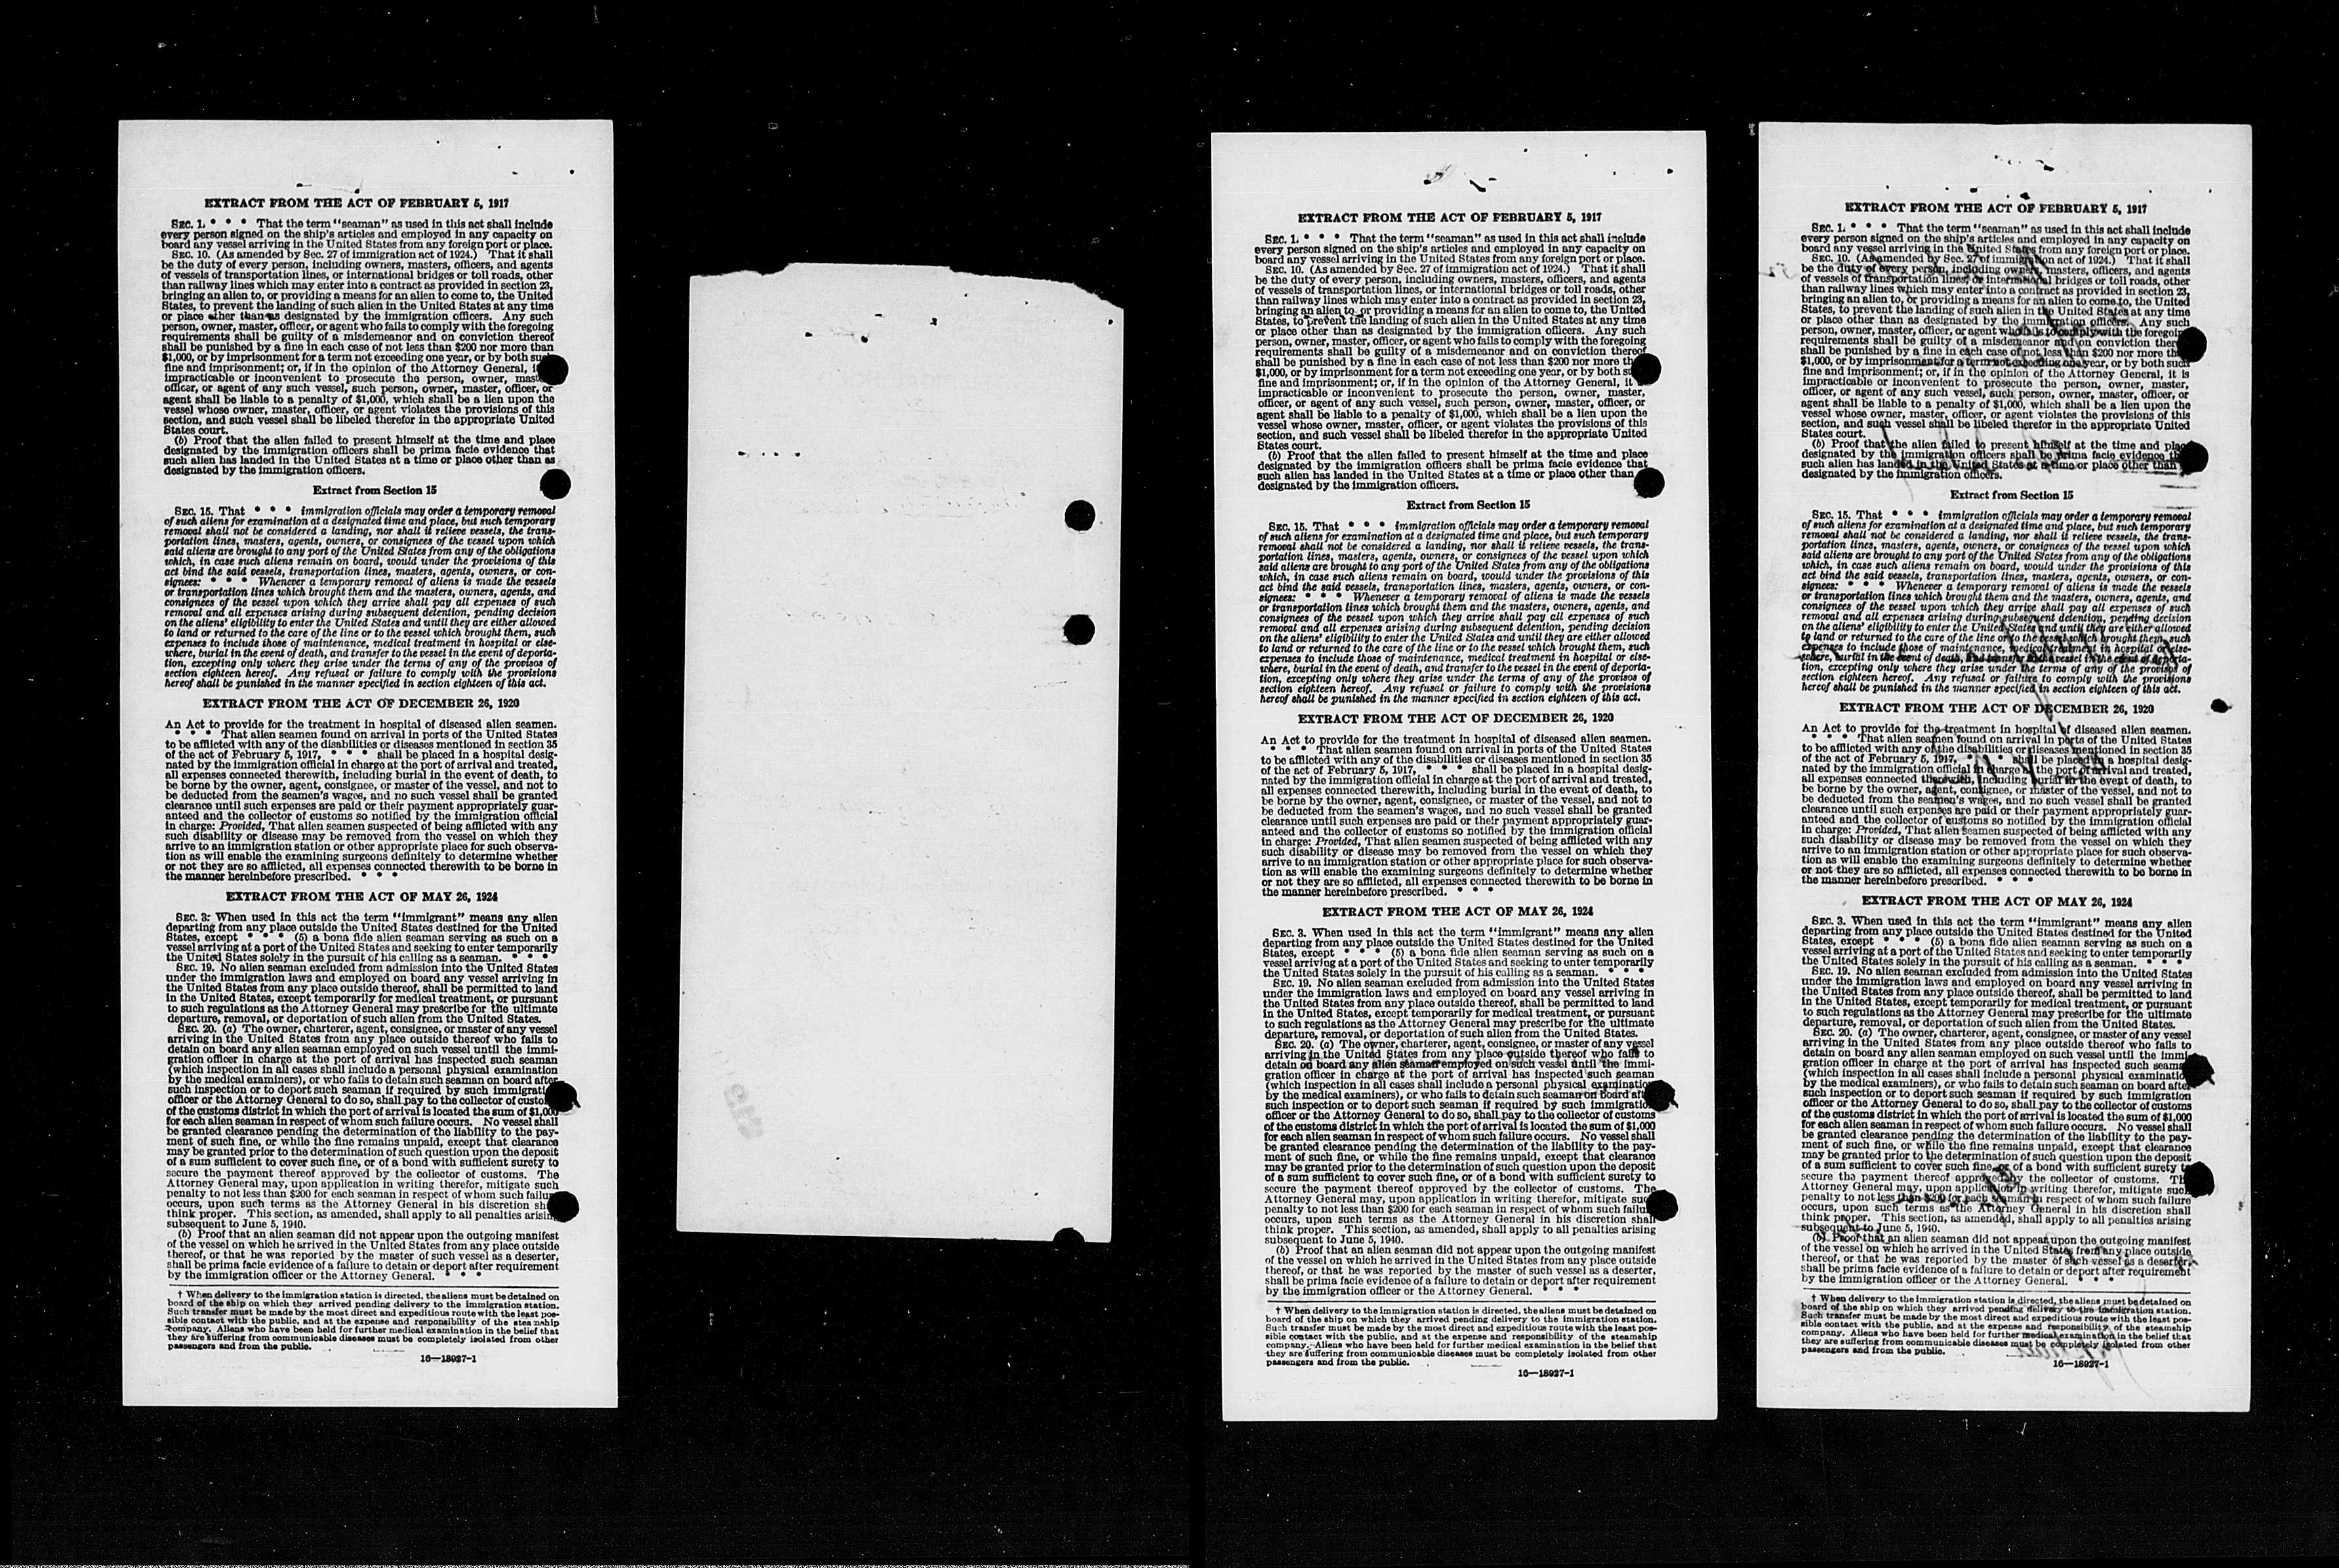 EXTRACT FROM THE ACT OF FEBRUARY 5, 1917
SEC. 1. * * * That the term "seaman" as used in this act shall include
every person signed on the ship's articles and employed in any capacity on
board any vessel arriving in the United States from any foreign port or place.
SEC. 10. (As amended by Sec. 27 of immigration act of 1924.) That it shall
be the duty of every person, including owners, masters, officers, and agents
of vessels of transportation lines, or international bridges or toll roads, other
than railway lines which may enter into a contract as provided in section 23,
bringing an alien to, or providing a means for an alien to come to, the United
States, to prevent the landing of such alien in the United States at any time
or place other than as designated by the immigration officers. Any such
person, owner, master, officer, or agent who fails to comply with the foregoing
requirements shall be guilty of a misdemeanor and on conviction thereof
shall be punished by a fine in each case of not less than $200 nor more than
$1,000, or by imprisonment for a term not exceeding one year, or by both such
fine and imprisonment; or, if in the opinion of the Attorney General, it
impracticable or inconvenient to prosecute the person, owner, master,
officer, or agent of any such vessel, such person, owner, master, officer, or
agent shall be liable to a penalty of $1,000, which shall be a lien upon the
vessel whose owner, master, officer, or agent violates the provisions of this
section, and such vessel shall be libeled therefor in the appropriate United
States court.
(b) Proof that the alien failed to present himself at the time and place
designated by the immigration officers shall be prima facie evidence that
such alien has landed in the United States at a time or place other than as
designated by the immigration officers.
Extract from Section 15
SEC. 15. That * * * immigration officials may order a temporary removal
of such aliens for examination at a designated time and place, but such temporary
removal shall not be considered a landing, nor shall it relieve vessels, the trans-
portation lines, masters, agents, owners, or consignees of the vessel upon which
said aliens are brought to any port of the United States from any of the obligations
which, in case such aliens remain on board, would under the provisions of this
act bind the said vessels, transportation lines, masters, agents, owners, or con-
signees: * * * Whenever a temporary removal of aliens is made the vessels
or transportation lines which brought them and the masters, owners, agents, and
consignees of the vessel upon which they arrive shall pay all expenses of such
removal and all expenses arising during subsequent detention, pending decision
on the aliens' eligibility to enter the United States and until they are either allowed
to land or returned to the care of the line or to the vessel which brought them, such
expenses to include those of maintenance, medical treatment in hospital or else-
where, burial in the event of death, and transfer to the vessel in the event of deporta-
tion, excepting only where they arise under the terms of any of the provisos of
section eighteen hereof. Any refusal or failure to comply with the provisions
hereof shall be punished in the manner specified in section eighteen of this act.
EXTRACT FROM THE ACT OF DECEMBER 26, 1920
An Act to provide for the treatment in hospital of diseased alien seamen.
* * * That alien seamen found on arrival in ports of the United States
to be afflicted with any of the disabilities or diseases mentioned in section 35
of the act of February 5, 1917, * * * shall be placed in a hospital desig-
nated by the immigration official in charge at the port of arrival and treated,
all expenses connected therewith, including burial in the event of death, to
be borne by the owner, agent, consignee, or master of the vessel, and not to
be deducted from the seamen's wages, and no such vessel shall be granted
clearance until such expenses are paid or their payment appropriately guar-
anteed and the collector of customs so notified by the immigration official
in charge: Provided, That alien seamen suspected of being afflicted with any
such disability or disease may be removed from the vessel on which they
arrive to an immigration station or other appropriate place for such observa-
tion as will enable the examining surgeons definitely to determine whether
or not they are so afflicted, all expenses connected therewith to be borne in
the manner hereinbefore prescribed. * * *
EXTRACT FROM THE ACT OF MAY 26, 1924
SEC. 3. When used in this act the term "immigrant" means any alien
departing from any place outside the United States destined for the United
States, except * * * (5) a bona fide alien seaman serving as such on a
vessel arriving at a port of the United States and seeking to enter temporarily
the United States solely in the pursuit of his calling as a seaman. * * *
SEC. 19. No alien seaman excluded from admission into the United States
under the immigration laws and employed on board any vessel arriving in
the United States from any place outside thereof, shall be permitted to land
in the United States, except temporarily for medical treatment, or pursuant
to such regulations as the Attorney General may prescribe for the ultimate
departure, removal, or deportation of such alien from the United States.
SEC. 20. (a) The owner, charterer, agent, consignee, or master of any vessel
arriving in the United States from any place outside thereof who fails to
detain on board any alien seaman employed on such vessel until the immi-
gration officer in charge at the port of arrival has inspected such seaman
(which inspection in all cases shall include a personal physical examination
by the medical examiners), or who fails to detain such seaman on board after
such inspection or to deport such seaman if required by such immigration
officer or the Attorney General to do so, shall pay to the collector of customs
of the customs district in which the port of arrival is located the sum of $1,000
for each alien seaman in respect of whom such failure occurs. No vessel shall
be granted clearance pending the determination of the liability to the pay-
ment of such fine, or while the fine remains unpaid, except that clearance
may be granted prior to the determination of such question upon the deposit
of a sum sufficient to cover such fine, or of a bond with sufficient surety to
secure the payment thereof approved by the collector of customs. The
Attorney General may, upon application in writing therefor, mitigate such
penalty to not less than $200 for each seaman in respect of whom such failure
occurs, upon such terms as the Attorney General in his discretion shall
think proper. This section, as amended, shall apply to all penalties arising
subsequent to June 5, 1940.
(b) Proof that an alien seaman did not appear upon the outgoing manifest
of the vessel on which he arrived in the United States from any place outside
thereof, or that he was reported by the master of such vessel as a deserter,
shall be prima facie evidence of a failure to detain or deport after requirement
by the immigration officer or the Attorney General. * * *
† When delivery to the immigration station is directed, the aliens must be detained on
board of the ship on which they arrived pending delivery to the immigration station.
Such transfer must be made by the most direct and expeditious route with the least pos-
sible contact with the public, and at the expense and responsibility of the steamship
company. Aliens who have been held for further medical examination in the belief that
they are suffering from communicable diseases must be completely isolated from other
passengers and from the public.
16—18927-1
EXTRACT FROM THE ACT OF FEBRUARY 5, 1917
SEC. 1. * * * That the term "seaman" as used in this act shall include
every person signed on the ship's articles and employed in any capacity on
board any vessel arriving in the United States from any foreign port or place.
SEC. 10. (As amended by Sec. 27 of immigration act of 1924.) That it shall
be the duty of every person, including owners, masters, officers, and agents
of vessels of transportation lines, or international bridges or toll roads, other
than railway lines which may enter into a contract as provided in section 23,
bringing an alien to, or providing a means for an alien to come to, the United
States, to prevent the landing of such alien in the United States at any time
or place other than as designated by the immigration officers. Any such
person, owner, master, officer, or agent who fails to comply with the foregoing
requirements shall be guilty of a misdemeanor and on conviction thereof
shall be punished by a fine in each case of not less than $200 nor more than
$1,000, or by imprisonment for a term not exceeding one year, or by both such
fine and imprisonment; or, if in the opinion of the Attorney General, it
impracticable or inconvenient to prosecute the person, owner, master,
officer, or agent of any such vessel, such person, owner, master, officer, or
agent shall be liable to a penalty of $1,000, which shall be a lien upon the
vessel whose owner, master, officer, or agent violates the provisions of this
section, and such vessel shall be libeled therefor in the appropriate United
States court.
(b) Proof that the alien failed to present himself at the time and place
designated by the immigration officers shall be prima facie evidence that
such alien has landed in the United States at a time or place other than
designated by the immigration officers.
Extract from Section 15
SEC. 15. That * * * immigration officials may order a temporary removal
of such aliens for examination at a designated time and place, but such temporary
removal shall not be considered a landing, nor shall it relieve vessels, the trans-
portation lines, masters, agents, owners, or consignees of the vessel upon which
said aliens are brought to any port of the United States from any of the obligations
which, in case such aliens remain on board, would under the provisions of this
act bind the said vessels, transportation lines, masters, agents, owners, or con-
signees: * * * Whenever a temporary removal of aliens is made the vessels
or transportation lines which brought them and the masters, owners, agents, and
consignees of the vessel upon which they arrive shall pay all expenses of such
removal and all expenses arising during subsequent detention, pending decision
on the aliens' eligibility to enter the United States and until they are either allowed
to land or returned to the care of the line or to the vessel which brought them, such
expenses to include those of maintenance, medical treatment in hospital or else-
where, burial in the event of death, and transfer to the vessel in the event of deporta-
tion, excepting only where they arise under the terms of any of the provisos of
section eighteen hereof. Any refusal or failure to comply with the provisions
hereof shall be punished in the manner specified in section eighteen of this act.
EXTRACT FROM THE ACT OF DECEMBER 26, 1920
An Act to provide for the treatment in hospital of diseased alien seamen.
* * * That alien seamen found on arrival in ports of the United States
to be afflicted with any of the disabilities or diseases mentioned in section 35
of the act of February 5, 1917, * * * shall be placed in a hospital desig-
nated by the immigration official in charge at the port of arrival and treated,
all expenses connected therewith, including burial in the event of death, to
be borne by the owner, agent, consignee, or master of the vessel, and not to
be deducted from the seamen's wages, and no such vessel shall be granted
clearance until such expenses are paid or their payment appropriately guar-
anteed and the collector of customs so notified by the immigration official
in charge: Provided, That alien seamen suspected of being afflicted with any
such disability or disease may be removed from the vessel on which they
arrive to an immigration station or other appropriate place for such observa-
tion as will enable the examining surgeons definitely to determine whether
or not they are so afflicted, all expenses connected therewith to be borne in
the manner hereinbefore prescribed. * * *
EXTRACT FROM THE ACT OF MAY 26, 1924
SEC. 3. When used in this act the term "immigrant" means any alien
departing from any place outside the United States destined for the United
States, except * * * (5) a bona fide alien seaman serving as such on a
vessel arriving at a port of the United States and seeking to enter temporarily
the United States solely in the pursuit of his calling as a seaman. * * *
SEC. 19. No alien seaman excluded from admission into the United States
under the immigration laws and employed on board any vessel arriving in
the United States from any place outside thereof, shall be permitted to land
in the United States, except temporarily for medical treatment, or pursuant
to such regulations as the Attorney General may prescribe for the ultimate
departure, removal, or deportation of such alien from the United States.
SEC. 20. (a) The owner, charterer, agent, consignee, or master of any vessel
arriving in the United States from any place outside thereof who fails to
detain on board any alien seaman employed on such vessel until the immi-
gration officer in charge at the port of arrival has inspected such seaman
(which inspection in all cases shall include a personal physical examination
by the medical examiners), or who fails to detain such seaman on board after
such inspection or to deport such seaman if required by such immigration
officer or the Attorney General to do so, shall pay to the collector of customs
of the customs district in which the port of arrival is located the sum of $1,000
for each alien seaman in respect of whom such failure occurs. No vessel shall
be granted clearance pending the determination of the liability to the pay-
ment of such fine, or while the fine remains unpaid, except that clearance
may be granted prior to the determination of such question upon the deposit
of a sum sufficient to cover such fine, or of a bond with sufficient surety to
secure the payment thereof approved by the collector of customs. The
Attorney General may, upon application in writing therefor, mitigate such
penalty to not less than $200 for each seaman in respect of whom such failure
occurs, upon such terms as the Attorney General in his discretion shall
think proper. This section, as amended, shall apply to all penalties arising
subsequent to June 5, 1940.
(b) Proof that an alien seaman did not appear upon the outgoing manifest
of the vessel on which he arrived in the United States from any place outside
thereof, or that he was reported by the master of such vessel as a deserter,
shall be prima facie evidence of a failure to detain or deport after requirement
by the immigration officer or the Attorney General. * * *
† When delivery to the immigration station is directed, the aliens must be detained on
board of the ship on which they arrived pending delivery to the immigration station.
Such transfer must be made by the most direct and expeditious route with the least pos-
sible contact with the public, and at the expense and responsibility of the steamship
company. Aliens who have been held for further medical examination in the belief that
they are suffering from communicable diseases must be completely isolated from other
passengers and from the public.
16—18927-1
EXTRACT FROM THE ACT OF FEBRUARY 5, 1917
SEC. 1. * * * That the term "seaman" as used in this act shall include
every person signed on the ship's articles and employed in any capacity on
board any vessel arriving in the United States from any foreign port or place.
SEC. 10. (As amended by Sec. 27 of immigration act of 1924.) That it shall
be the duty of every person, including owners, masters, officers, and agents
of vessels of transportation lines, or international bridges or toll roads, other
than railway lines which may enter into a contract as provided in section 23,
bringing an alien to, or providing a means for an alien to come to, the United
States, to prevent the landing of such alien in the United States at any time
or place other than as designated by the immigration officers. Any such
person, owner, master, officer, or agent who fails to comply with the foregoing
requirements shall be guilty of a misdemeanor and on conviction thereof
shall be punished by a fine in each case of not less than $200 nor more than
$1,000, or by imprisonment for a term not exceeding one year, or by both such
fine and imprisonment; or, if in the opinion of the Attorney General, it is
impracticable or inconvenient to prosecute the person, owner, master,
officer, or agent of any such vessel, such person, owner, master, officer, or
agent shall be liable to a penalty of $1,000, which shall be a lien upon the
vessel whose owner, master, officer, or agent violates the provisions of this
section, and such vessel shall be libeled therefor in the appropriate United
States court.
(b) Proof that the alien failed to present himself at the time and place
designated by the immigration officers shall be prima facie evidence that
such alien has landed in the United States at a time or place other than
designated by the immigration officers.
Extract from Section 15
SEC. 15. That * * * immigration officials may order a temporary removal
of such aliens for examination at a designated time and place, but such temporary
removal shall not be considered a landing, nor shall it relieve vessels, the trans-
portation lines, masters, agents, owners, or consignees of the vessel upon which
said aliens are brought to any port of the United States from any of the obligations
which, in case such aliens remain on board, would under the provisions of this
act bind the said vessels, transportation lines, masters, agents, owners, or con-
signees: * * * Whenever a temporary removal of aliens is made the vessels
or transportation lines which brought them and the masters, owners, agents, and
consignees of the vessel upon which they arrive shall pay all expenses of such
removal and all expenses arising during subsequent detention, pending decision
on the aliens' eligibility to enter the United States and until they are either allowed
to land or returned to the care of the line or to the vessel which brought them, such
expenses to include those of maintenance, medical treatment in hospital or else-
where, burial in the event of death, and transfer to the vessel in the event of deporta-
tion, excepting only where they arise under the terms of any of the provisos of
section eighteen hereof. Any refusal or failure to comply with the provisions
hereof shall be punished in the manner specified in section eighteen of this act.
EXTRACT FROM THE ACT OF DECEMBER 26, 1920
An Act to provide for the treatment in hospital of diseased alien seamen.
* * * That alien seamen found on arrival in ports of the United States
to be afflicted with any of the disabilities or diseases mentioned in section 35
of the act of February 5, 1917, * * * shall be placed in a hospital desig-
nated by the immigration official in charge at the port of arrival and treated,
all expenses connected therewith, including burial in the event of death, to
be borne by the owner, agent, consignee, or master of the vessel, and not to
be deducted from the seamen's wages, and no such vessel shall be granted
clearance until such expenses are paid or their payment appropriately guar-
anteed and the collector of customs so notified by the immigration official
in charge: Provided, That alien seamen suspected of being afflicted with any
such disability or disease may be removed from the vessel on which they
arrive to an immigration station or other appropriate place for such observa-
tion as will enable the examining surgeons definitely to determine whether
or not they are so afflicted, all expenses connected therewith to be borne in
the manner hereinbefore prescribed. * * *
EXTRACT FROM THE ACT OF MAY 26, 1924
SEC. 3. When used in this act the term "immigrant" means any alien
departing from any place outside the United States destined for the United
States, except * * * (5) a bona fide alien seaman serving as such on a
vessel arriving at a port of the United States and seeking to enter temporarily
the United States solely in the pursuit of his calling as a seaman. * * *
SEC. 19. No alien seaman excluded from admission into the United States
under the immigration laws and employed on board any vessel arriving in
the United States from any place outside thereof, shall be permitted to land
in the United States, except temporarily for medical treatment, or pursuant
to such regulations as the Attorney General may prescribe for the ultimate
departure, removal, or deportation of such alien from the United States.
SEC. 20. (a) The owner, charterer, agent, consignee, or master of any vessel
arriving in the United States from any place outside thereof who fails to
detain on board any alien seaman employed on such vessel until the immi-
gration officer in charge at the port of arrival has inspected such seaman
(which inspection in all cases shall include a personal physical examination
by the medical examiners), or who fails to detain such seaman on board after
such inspection or to deport such seaman if required by such immigration
officer or the Attorney General to do so, shall pay to the collector of customs
of the customs district in which the port of arrival is located the sum of $1,000
for each alien seaman in respect of whom such failure occurs. No vessel shall
be granted clearance pending the determination of the liability to the pay-
ment of such fine, or while the fine remains unpaid, except that clearance
may be granted prior to the determination of such question upon the deposit
of a sum sufficient to cover such fine, or of a bond with sufficient surety to
secure the payment thereof approved by the collector of customs. The
Attorney General may, upon application in writing therefor, mitigate such
penalty to not less than $200 for each seaman in respect of whom such failure
occurs, upon such terms as the Attorney General in his discretion shall
think proper. This section, as amended, shall apply to all penalties arising
subsequent to June 5, 1940.
(b) Proof that an alien seaman did not appear upon the outgoing manifest
of the vessel on which he arrived in the United States from any place outside
thereof, or that he was reported by the master of such vessel as a deserter,
shall be prima facie evidence of a failure to detain or deport after requirement
by the immigration officer or the Attorney General. * * *
† When delivery to the immigration station is directed, the aliens must be detained on
board of the ship on which they arrived pending delivery to the immigration station.
Such transfer must be made by the most direct and expeditious route with the least pos-
sible contact with the public, and at the expense and responsibility of the steamship
company. Aliens who have been held for further medical examination in the belief that
they are suffering from communicable diseases must be completely isolated from other
passengers and from the public.
16—18927-1